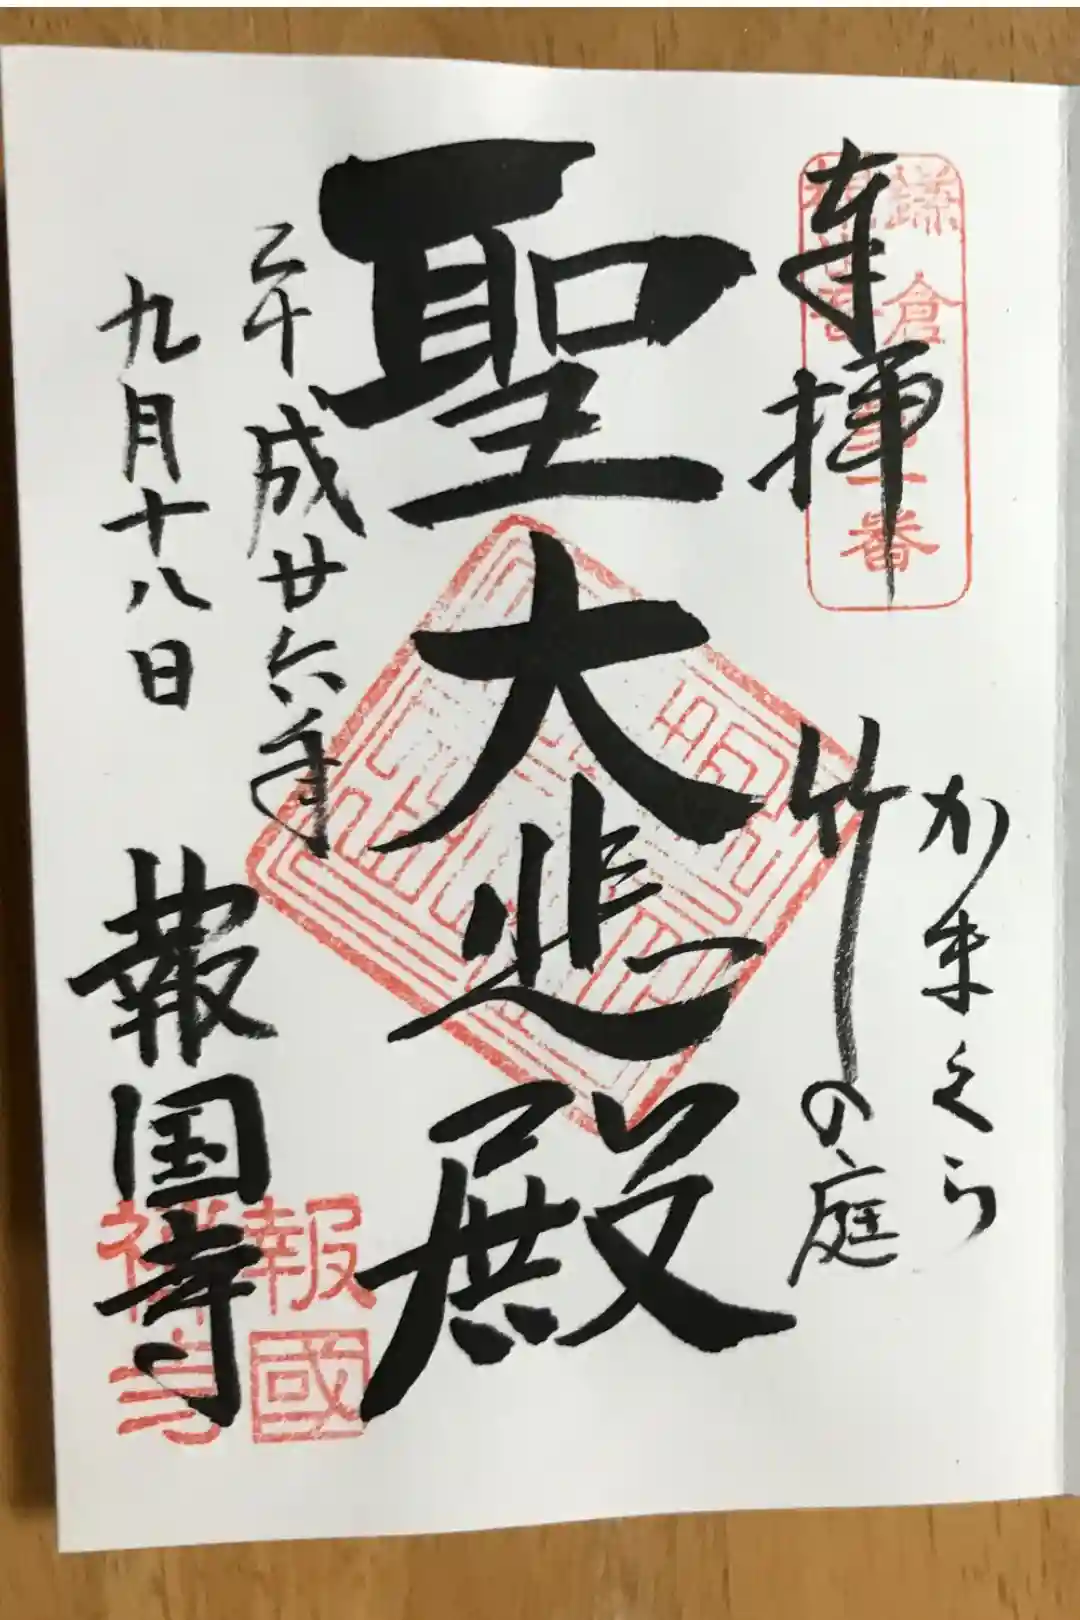 奉拝
かまくら
竹の庭
聖大悲殿
平成廿六年
九月十八日
報国寺
鎌倉
十番
報國
禅寺